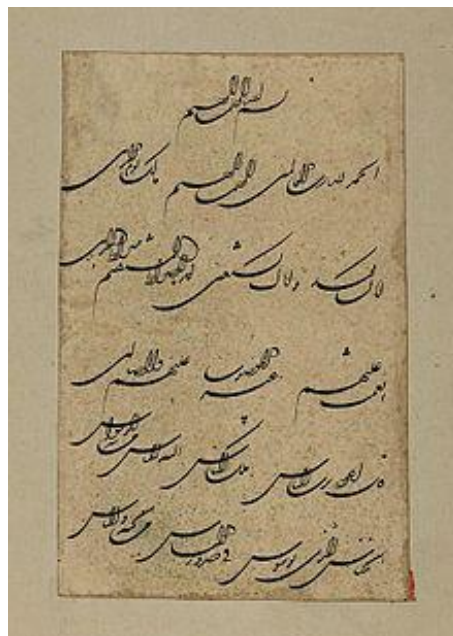 بسم الله الرحمن الرحيم
الحمد لله رب العالمين الرحمن الرحيم مالك يوم الدين
اياك نعبد و اياك نستعين اهدنا الصراط المستقيم صراط الذين
انعمت عليهم غير المغضوب عليهم ولا الضالين
قل اعوذ برب الناس ملك الناس اله الناس من شر الوسواس
الخناس الذى يوسوس فى صدور الناس من الجنة و الناس